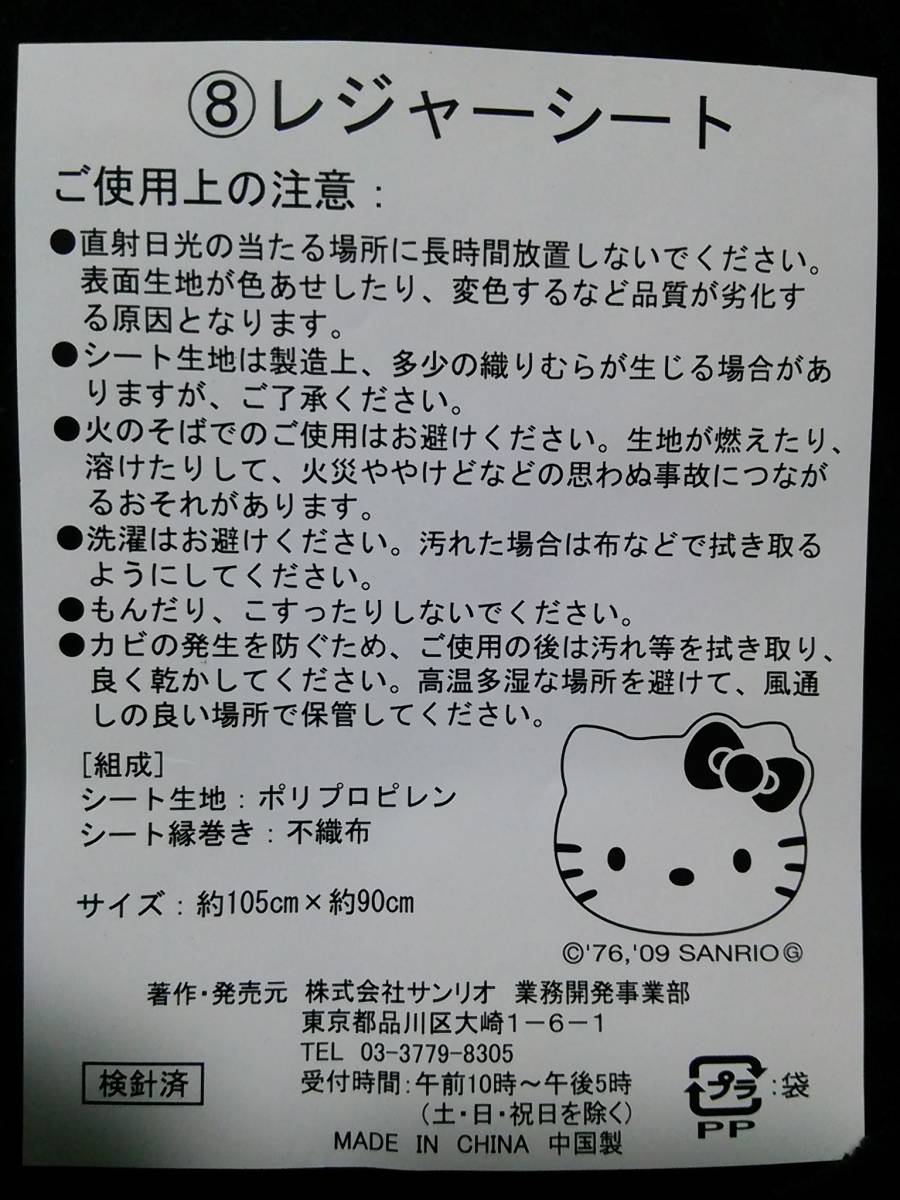 ⑧レジャーシート
ご使用上の注意：
●直射日光の当たる場所に長時間放置しないでください。
表面生地が色あせしたり、変色するなど品質が劣化す
る原因となります。
●シート生地は製造上、多少の織りむらが生じる場合があ
りますが、ご了承ください。
●火のそばでのご使用はお避けください。生地が燃えたり、
溶けたりして、火災ややけどなどの思わぬ事故につなが
るおそれがあります。
●洗濯はお避けください。汚れた場合は布などで拭き取る
ようにしてください。
●もんだり、こすったりしないでください。
●カビの発生を防ぐため、ご使用の後は汚れ等を拭き取り、
良く乾かしてください。高温多湿な場所を避けて、風通
しの良い場所で保管してください。
［組成］
シート生地：ポリプロピレン
シート縁巻き：不織布
サイズ：約105cm×約90cm
©'76,'09 SANRIO Ⓖ
著作・発売元 株式会社サンリオ 業務開発事業部
東京都品川区大崎1－6－1
TEL 03-3779-8305
受付時間：午前10時～午後5時
（土・日・祝日を除く）
MADE IN CHINA 中国製
検針済
プラ：袋
PP